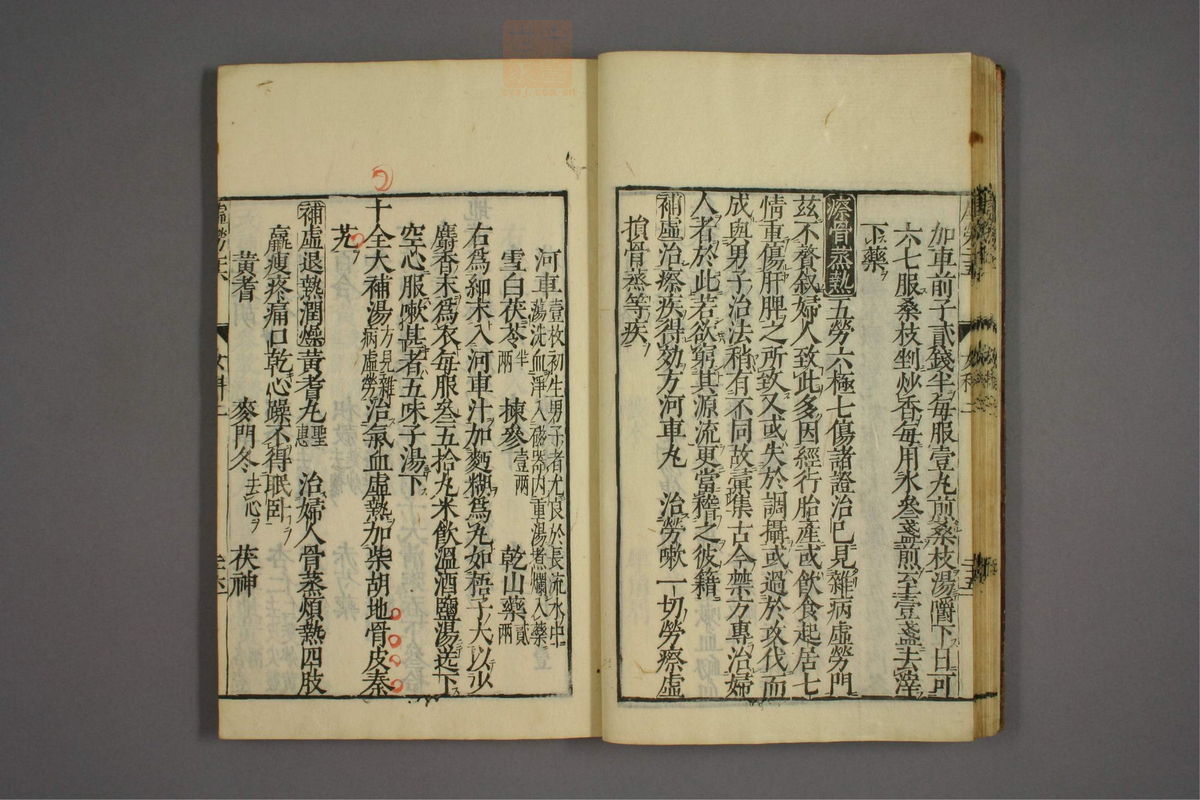 加車前子貳錢半每服壹丸煎桑枝湯嚼下日可
六七服桑枝剉炒香每用水叄盞煎至壹盞去滓
下藥
瘵骨蒸熱五勞六極七傷諸證治已見雜病虛勞門
茲不贅敘婦人致此多因經行胎產或飲食起居七
情重傷肝脾之所致又或失於調攝或過於攻伐而
成與男子治法稍有不同故彙集古今禁方專治婦
人者於此若欲窮其源流更當稽之彼籍
補虛治瘵疾得効方河車丸 治勞嗽一切勞瘵虛
損骨蒸等疾
河車壹枚初生男子者尤良於長流水中蕩洗血淨入磁器內重湯煮爛入藥
雪白茯苓半兩 揀參壹兩 乾山藥貳兩
右為細末入河車汁加麪糊為丸如梧子大以少
麝香末為衣每服叄五拾丸米飲溫酒鹽湯送下
空心服嗽甚者五味子湯下
十全大補湯方見雜病虛勞治氣血虛熱加柴胡地骨皮秦
艽
補虛退熱潤燥黃耆丸聖惠 治婦人骨蒸煩熱四肢
羸瘦疼痛口乾心躁不得眠臥
黃耆 麥門冬去心 茯神